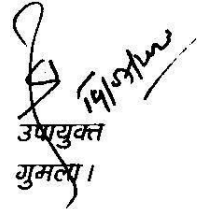 उपायुक्त
गुमला।